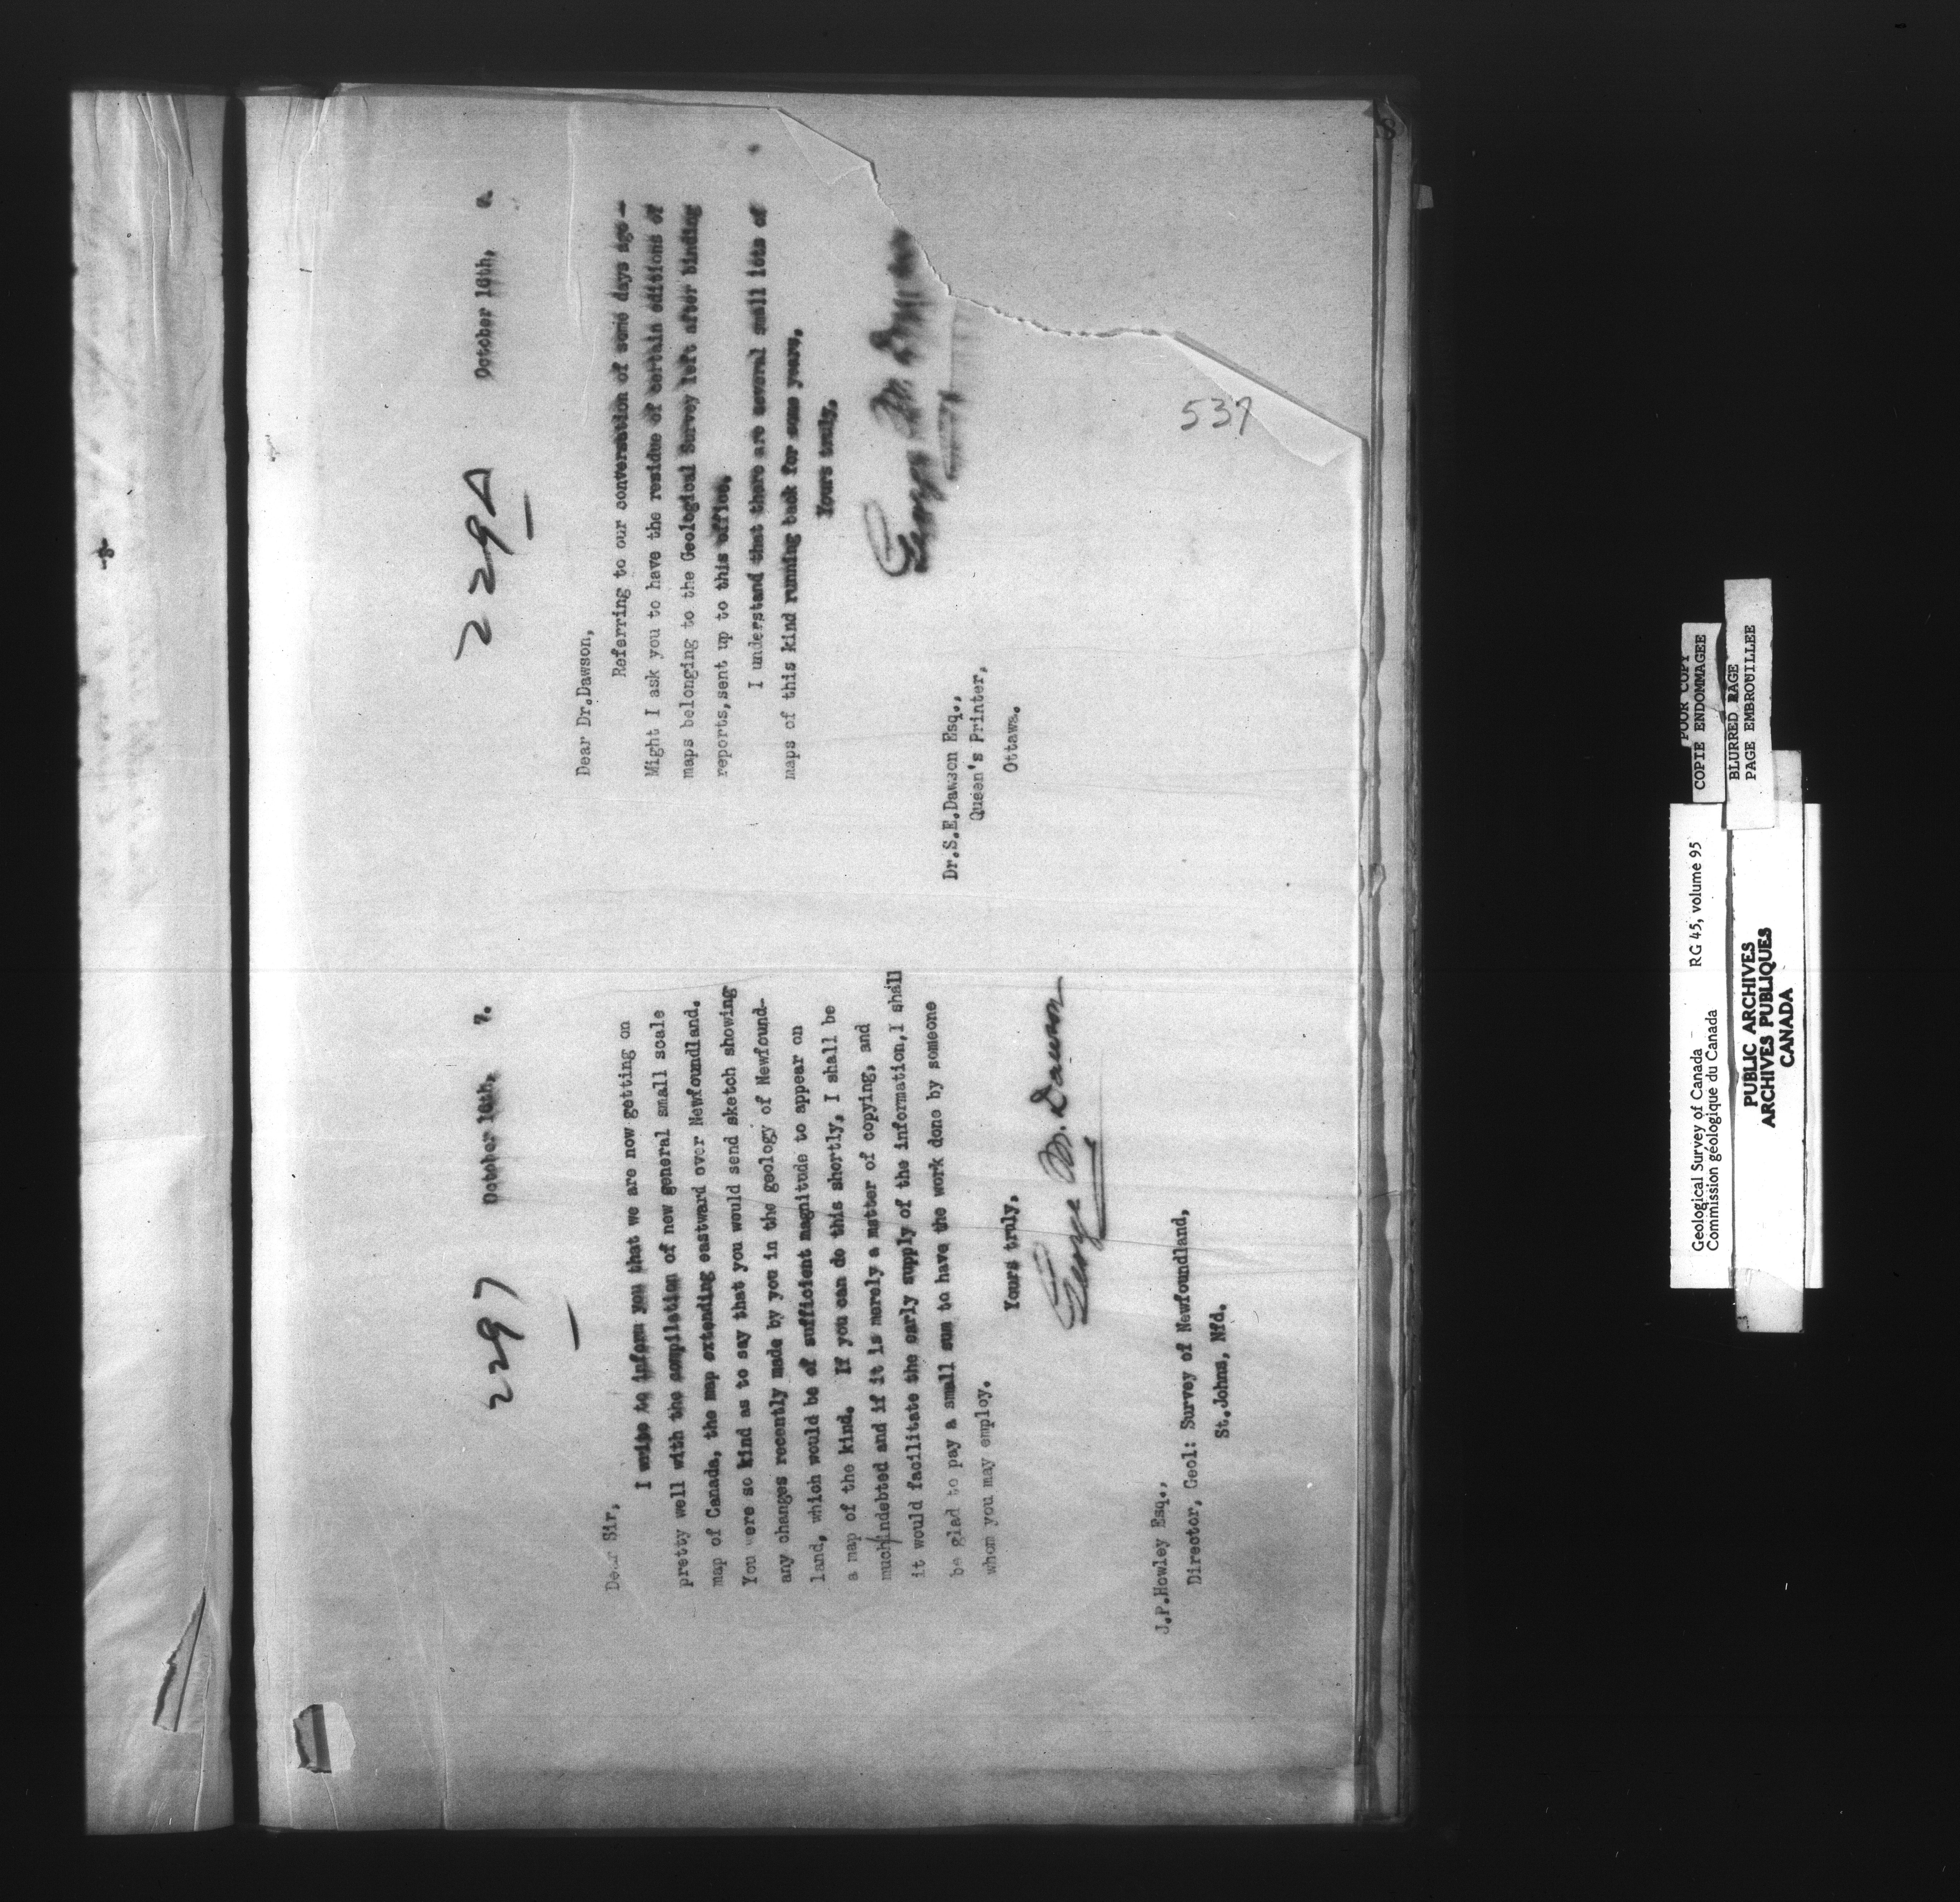 2297
October 16th, 7.
Dear Sir,
I write to inform you that we are now getting on
pretty well with the compilation of new general small scale
map of Canada, the map extending eastward over Newfoundland.
You were so kind as to say that you would send sketch showing
any changes recently made by you in the geology of Newfound-
land, which would be of sufficient magnitude to appear on
a map of the kind. If you can do this shortly, I shall be
much/indebted and if it is merely a matter of copying, and
it would facilitate the early supply of the information, I shall
be glad to pay a small sum to have the work done by someone
whom you may employ.
Yours truly,
George M. Dawson
J.P.Howley Esq.,
Director, Geol: Survey of Newfoundland,
St.Johns, Nfd.
October 16th,
Dear Dr.Dawson,
Referring to our conversation of some days ago—
Might I ask you to have the residue of certain editions of
maps belonging to the Geological Survey left after binding
reports,sent up to this office.
I understand that there are several small lots of
maps of this kind running back for some years.
Yours truly,
George M. Dawson
Dr.S.E.Dawson Esq.,
Queen's Printer,
Ottawa.
537
Geological Survey of Canada RG 45, volume 95
Commission géologique du Canada
PUBLIC ARCHIVES
ARCHIVES PUBLIQUES
CANADA
POOR COPY
COPIE ENDOMMAGEE
BLURRED PAGE
PAGE EMBROUILLEE